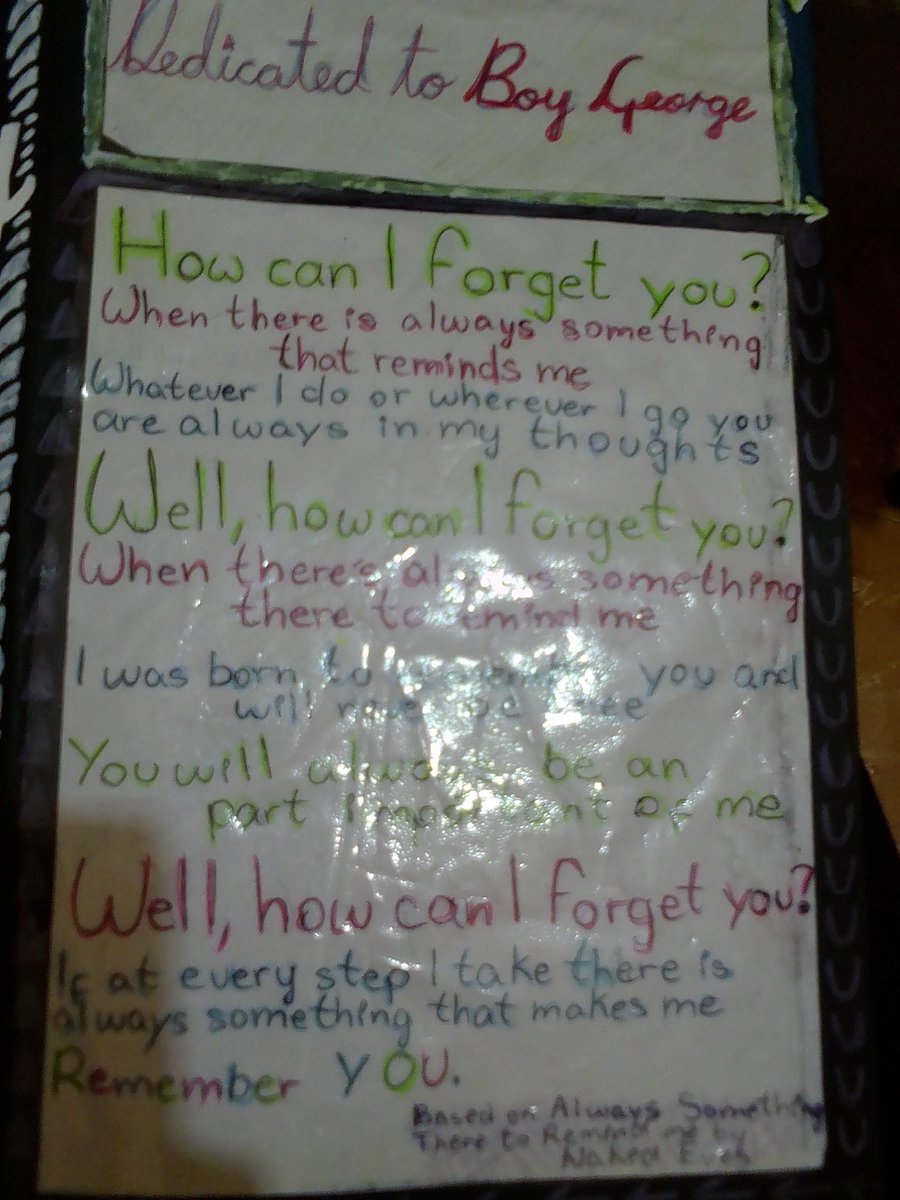 Dedicated to Boy George
How can I forget you?
When there is always something
that reminds me
Whatever I do or wherever I go you
are always in my thoughts
Well, how can I forget you?
When there's always something
there to remind me
I was born to you and
will never be
You will always be an
part important of me
Well, how can I forget you?
If at every step I take there is
always something that makes me
Remember YOU.
Based on Always Something
There to Remind me by
Naked Eyes